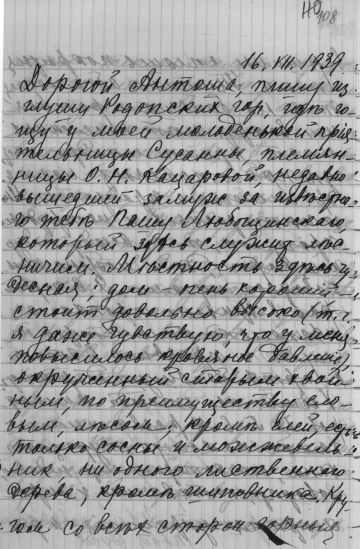 НО
108
16. VII. 1939
Дорогой Антоша, пишу из
глуши Родопских гор, гдѣ го-
щу у моей молоденькой прія-
тельницы Сусанны, племян-
ницы О. Н. Кацаровой, недавно
вышедшей замуж за извѣстна-
го тебѣ Пашу Любощинскаго,
который здѣсь служит лѣс-
ничим. Мѣстность здѣсь чу-
десная; дом очень хороший
стоит довольно высоко, т. ч.
я даже чувствую, что у меня
повысилось кровяное давленіе,
окруженный старым хвой-
ным, по преимуществу ело-
вым, лѣсом; кромѣ елей есть
только сосны и можжевель-
ник ни одного лиственнаго
дерева, кромѣ шиповника. Кру-
гом со всѣх сторон горныя